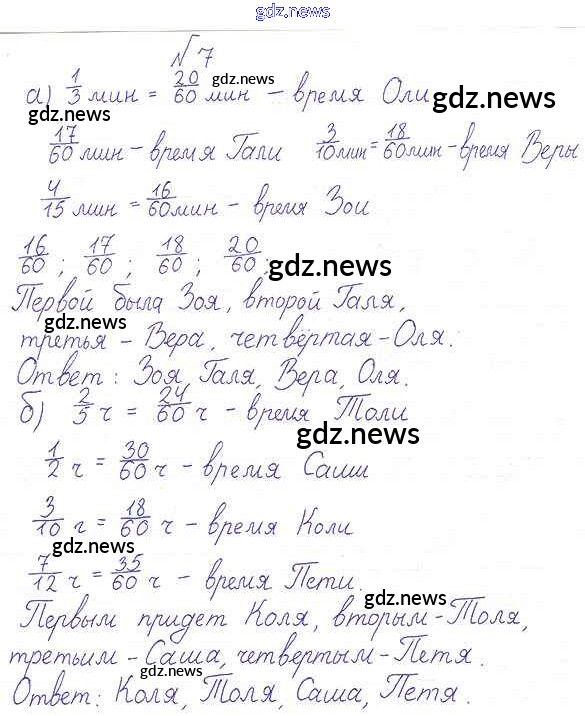 gdz.news
№7
а) 1/3 мин = 20/60 мин – время Оли
gdz.news
gdz.news
gdz.news
17/60 мин – время Гали 3/10 мин = 18/60 мин – время Веры
4/15 мин = 16/60 мин – время Зои
16/60; 17/60; 18/60; 20/60;
gdz.news
Первой была Зоя, второй Галя,
gdz.news
третья – Вера, четвёртая – Оля.
Ответ: Зоя, Галя, Вера, Оля.
б) 2/5 ч = 24/60 ч – время Толи
gdz.news
1/2 ч = 30/60 ч – время Саши
3/10 ч = 18/60 ч – время Коли
gdz.news
7/12 ч = 35/60 ч – время Пети.
gdz.news
Первым придет Коля, вторым – Толя,
третьим – Саша, четвертым – Петя.
gdz.news
Ответ: Коля, Толя, Саша, Петя.